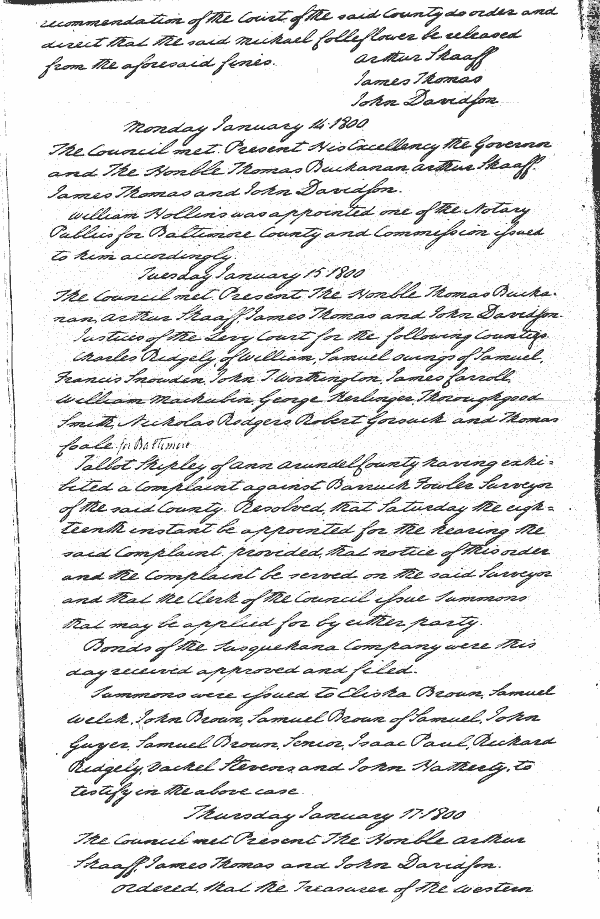 recommendation of the Court of the said County do order and
direct that the said Michael Folleflower be released
from the aforesaid fines.
Arthur Shaaff
James Thomas
John Davidson
Monday January 14. 1800
The Council met. Present His Excellency the Governor
and The Honble Thomas Buchanan, Arthur Shaaff.
James Thomas and John Davidson.
William Hollins was appointed one of the Notary
Publics for Baltimore County and Commission issued
to him accordingly.
Tuesday January 15 1800
The Council met. Present The Honble Thomas Bucha-
nan, Arthur Shaaff, James Thomas and John Davidson.
Justices of the Levy Court for the following Countys.
Charles Ridgely of William, Samuel Owings of Samuel,
Francis Snowden, John T Worthington, James Carroll,
William Mackubin, George Herlinger, Thoroughgood
Smith, Nicholas Rodgers, Robert Gorsuch and Thomas
Coale for Baltimore
Talbot Shipley of Ann Arundel County having exhi=
bited a Complaint against Barruch Fowler Surveyor
of the said County. Resolved, that Saturday the eigh=
teenth instant be appointed for the hearing the
said Complaint, provided, that notice of this order
and the Complaint be served on the said Surveyor
and that the Clerk of the Council issue Summons
that may be applied for by either party.
Bonds of the Susquehana Company were this
day received approved and filed.
Summons were issued to Elisha Brown, Samuel
Welch, John Brown, Samuel Brown of Samuel, John
Guyer, Samuel Brown, Senior, Isaac Paul, Richard
Ridgely, Vachel Stevens and John Hatherty, to
testify in the above case.
Thursday January 17. 1800
The Council met Present The Honble Arthur
Shaaff, James Thomas and John Davidson.
Ordered, that the Treasurer of the Western